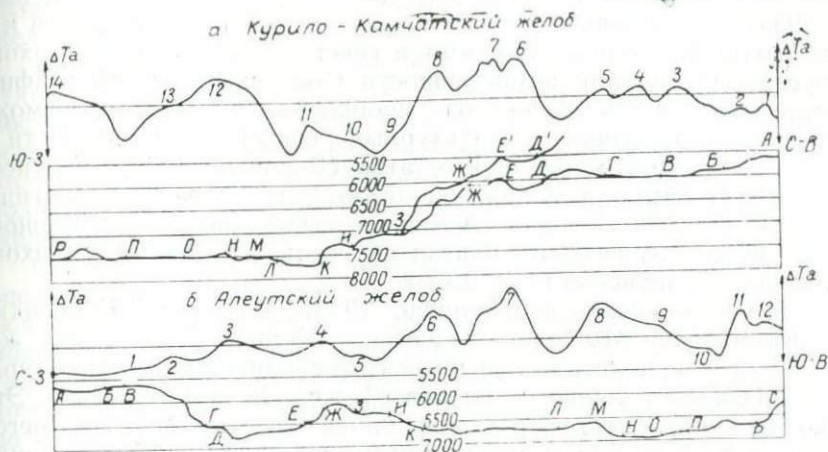 а Курило - Камчатский желоб
ΔTa
14 13 12 11 10 9 8 7 6 5 4 3 2 1
ΔTa
Ю-З
С-В
5500
6000
6500
7000
7500
8000
Е' Д'
Ж'
Е Д Г В Б А
Ж
З
Р П О Н М Л К И
ΔTa
б Алеутский желоб
ΔTa
1 2 3 4 5 6 7 8 9 10 11 12
С-З
Ю-В
5500
6000
5500
7000
А Б В Г Д Е Ж З И К Л М Н О П Р С